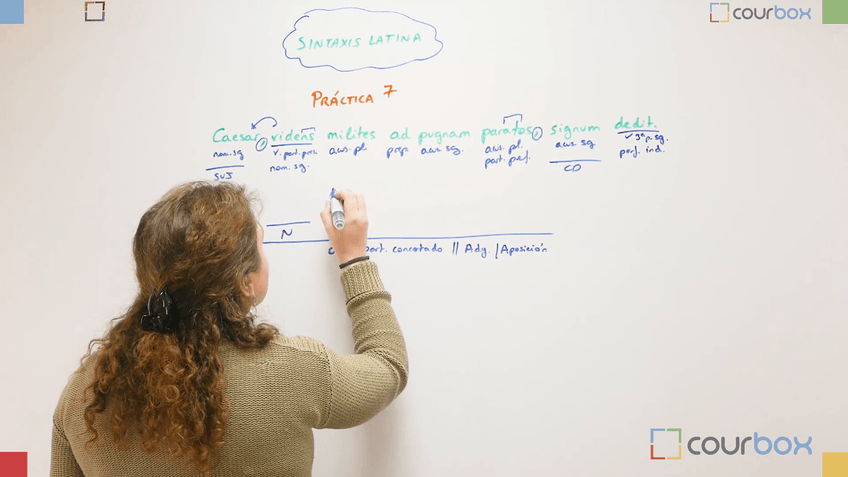 courbox
SINTAXIS LATINA
PRÁCTICA 7
Caesar, videns milites ad pugnam paratos, signum dedit.
nom. sg. v. part. pres. acus. pl. prep. acus. sg. acus. pl. acus. sg. v 3ª p. sg.
nom. sg. part. perf. perf. ind.
SUJ CD
N
part. concertado || Ady. / Aposición
courbox